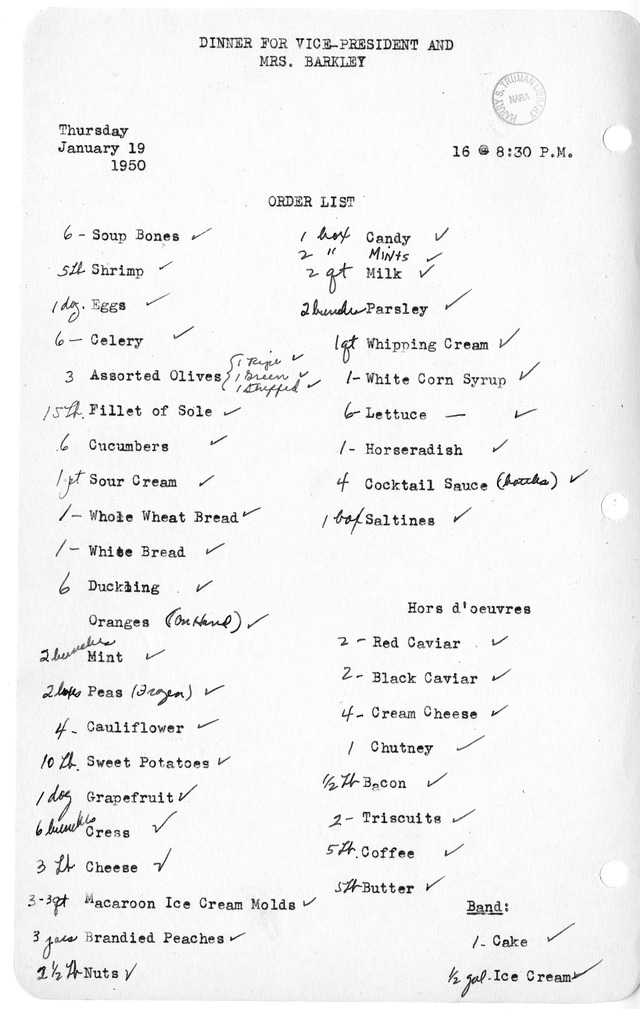 DINNER FOR VICE-PRESIDENT AND
MRS. BARKLEY
HARRY S. TRUMAN LIBRARY
NARA
Thursday
January 19
1950
16 @ 8:30 P.M.
ORDER LIST
6 - Soup Bones ✓
5 lb Shrimp ✓
1 doz. Eggs ✓
6 - Celery ✓
3 Assorted Olives { 1 Ripe ✓
1 Green ✓
1 Stuffed ✓
15 lb. Fillet of Sole ✓
6 Cucumbers ✓
1 pt Sour Cream ✓
1 - Whole Wheat Bread ✓
1 - White Bread ✓
6 Duckling ✓
Oranges (On Hand) ✓
2 bunches Mint ✓
2 boxes Peas (Frozen) ✓
4 - Cauliflower ✓
10 lb. Sweet Potatoes ✓
1 doz Grapefruit ✓
6 bunches Cress ✓
3 lb Cheese ✓
3-3qt Macaroon Ice Cream Molds ✓
3 jars Brandied Peaches ✓
1/2 lb Nuts ✓
1 box Candy ✓
2 " Mints ✓
2 qt Milk ✓
2 bunches Parsley ✓
1 qt Whipping Cream ✓
1 - White Corn Syrup ✓
6 - Lettuce — ✓
1 - Horseradish ✓
4 Cocktail Sauce (bottles) ✓
1 box Saltines ✓
Hors d'oeuvres
2 - Red Caviar ✓
2 - Black Caviar ✓
4 - Cream Cheese ✓
1 Chutney ✓
1/2 lb Bacon ✓
2 - Triscuits ✓
5 lb. Coffee ✓
5 lb Butter ✓
Band:
1 - Cake ✓
1/2 gal - Ice Cream ✓